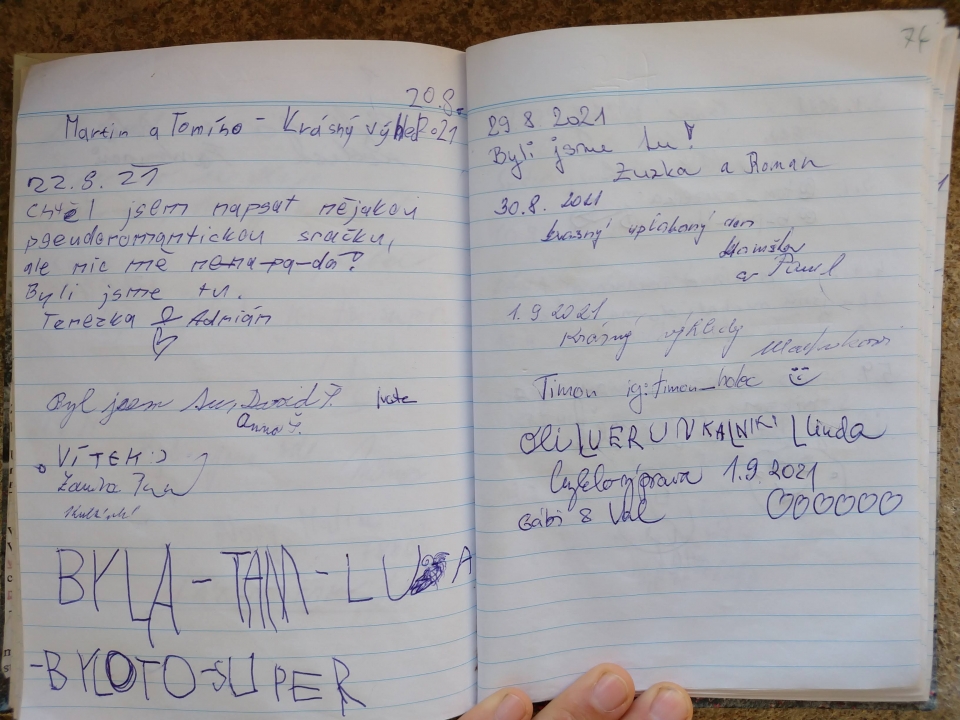 20.8.
Martin a Tomího - Krásný výhled 2021
22.8.21
chtěl jsem napsat nějakou
pseudoromantickou sračku,
ale nic mě nena-pa-dá!
Byli jsme tu.
Terezka & Adrián
Byl jsem David Š.
Anna Š.
VÍTEK:)
BYLA-TAM-LU A
-BYLOTO-SUPER
74
29 8 2021
Byli jsme tu!
Zuzka a Roman
30.8. 2021
krásný uplakaný den
a Pavel
1.9 2021
Krásný výhledy
Timon ig: timon_holec
Oli Linda
Cyklovýprava 1.9.2021
Gábi & Val